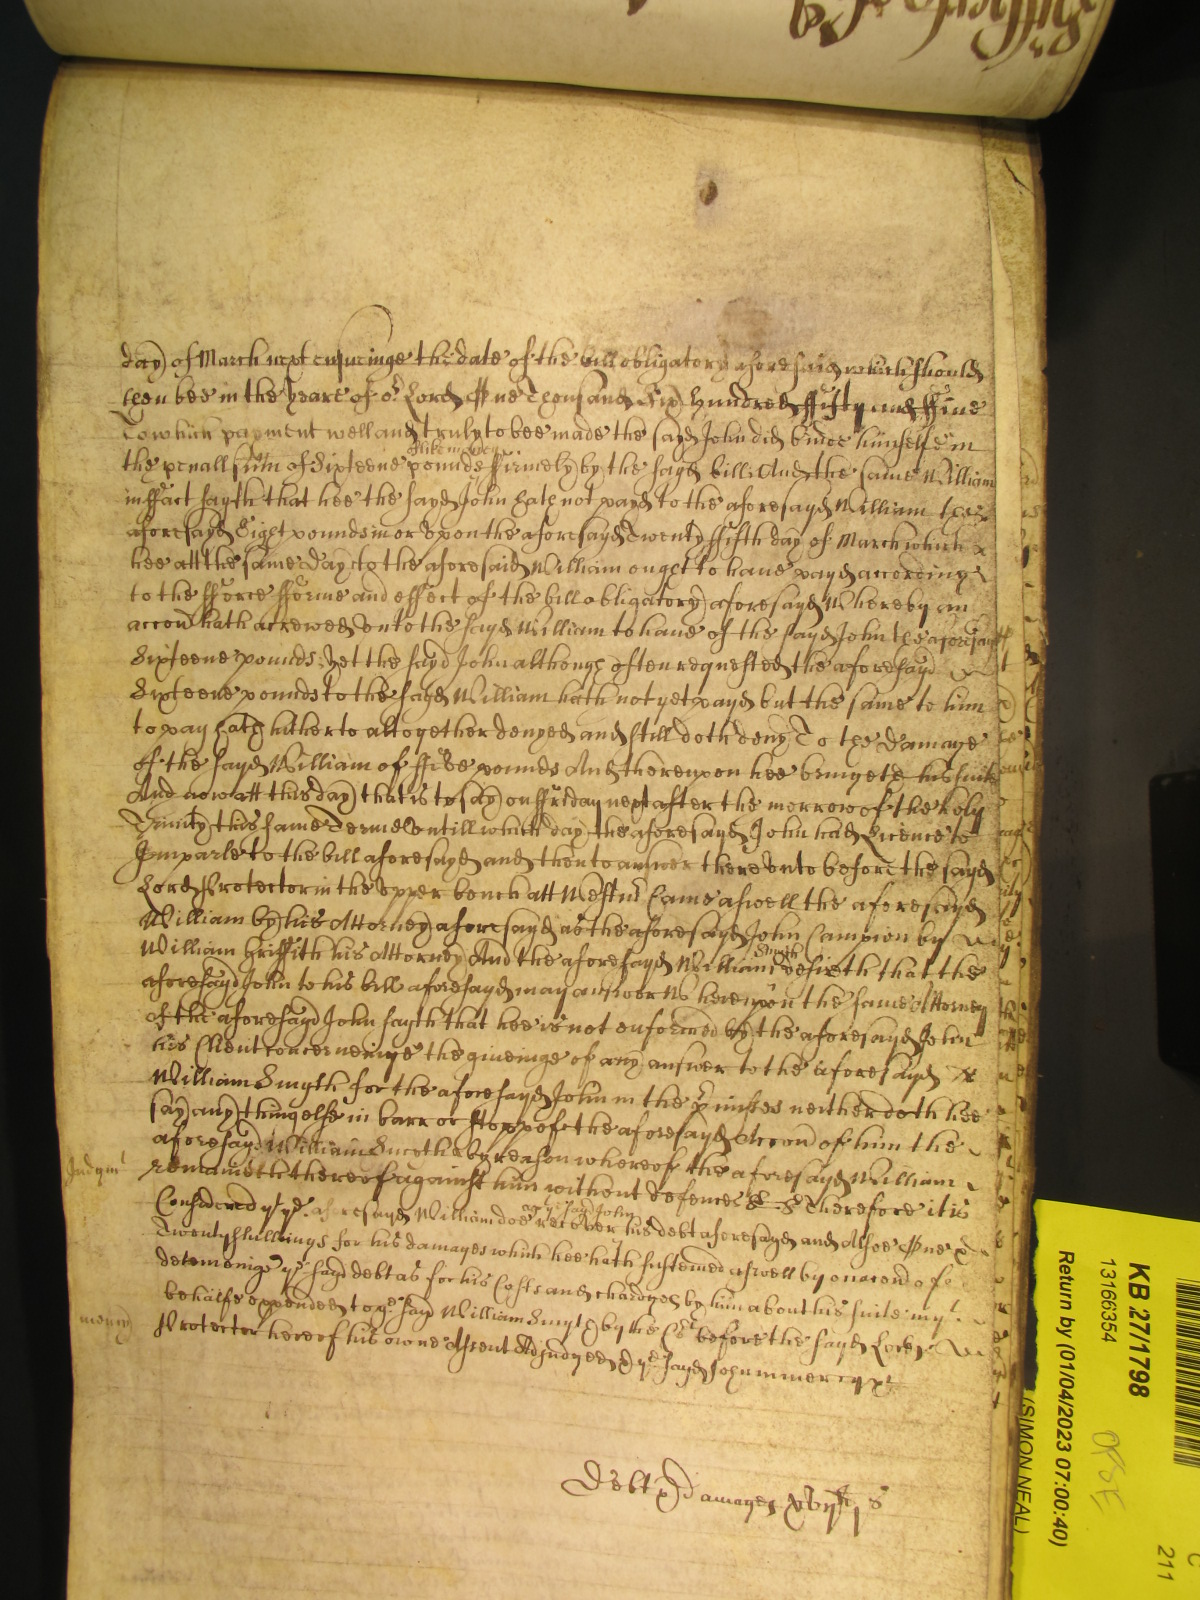 day of March next ensueinge the date of the bill obligatory aforesaid which should
then bee in the yeare of or Lord One Thousand Six Hundred ffifty and ffive
To which payment well and truly to bee made the sayd John did binde himselfe in
the penall sum of Sixteene pounds of like money ffirmely by the sayd bill And the same William
in ffact sayth that hee the sayd John hath not payd to the aforesayd William the
aforesayd Eight pounds in or upon the aforesayd Twenty ffifth day of March which
hee att the same day to the aforesaid William ought to have payd accordinge
to the fforce fforme and effect of the bill obligatory aforesayd Whereby an
accon hath acrewed unto the sayd William to have of the sayd John the aforesayd
Sixteene pounds Yet the sayd John although often requested the aforesayd
Sixteene pounds to the sayd William hath not yet payd but the same to him
to pay hath hitherto altogether denyed and still doth deny To the damage
of the sayd William of ffive pounds And thereupon hee bringeth his suit
And now att this day that is to say on ffriday next after the morrow of the holy
Trinity this same Terme untill which day the aforesayd John had Licence to
Imparle to the bill aforesayd and then to answer thereunto before the sayd
Lord Protector in the upper bench att Westmr Came aswell the aforesayd
William by his Attorney aforesayd as the aforesayd John Campion by
William Griffith his Attorney And the aforesayd William Smyth desireth that the
aforesayd John to his bill aforesayd may answer Whereupon the same Attorney
of the aforesayd John sayth that hee is not enformed by the aforesayd John
his Client concerneinge the giveinge of any answer to the aforesayd
William Smyth for the aforesayd John in the prmisses neither doth hee
say any thing else in barr or stopp of the aforesayd accon of him the
aforesayd William Smyth by reason whereof the aforesayd William
Judgmt remaineth thereof against him without defence &c Therefore it is
Considered yt ye aforesayd William doe recover agt ye sayd John his debt aforesayd and Alsoe One &
Twenty shillings for his damages which hee hath susteined aswell by occasion of
deteineinge ye sayd debt as for his Costs and chardges by him about his suite in yt
behalfe expended to ye sayd William Smyth by the Crt before the sayd Lord
mercy Protector hereof his owne Assent Adjudged & ye sayd John in mercy &c
Debt & damages xvijli js
KB 27/1798
13166354
Return by (01/04/2023 07:00:40)
(SIMON NEAL)
211